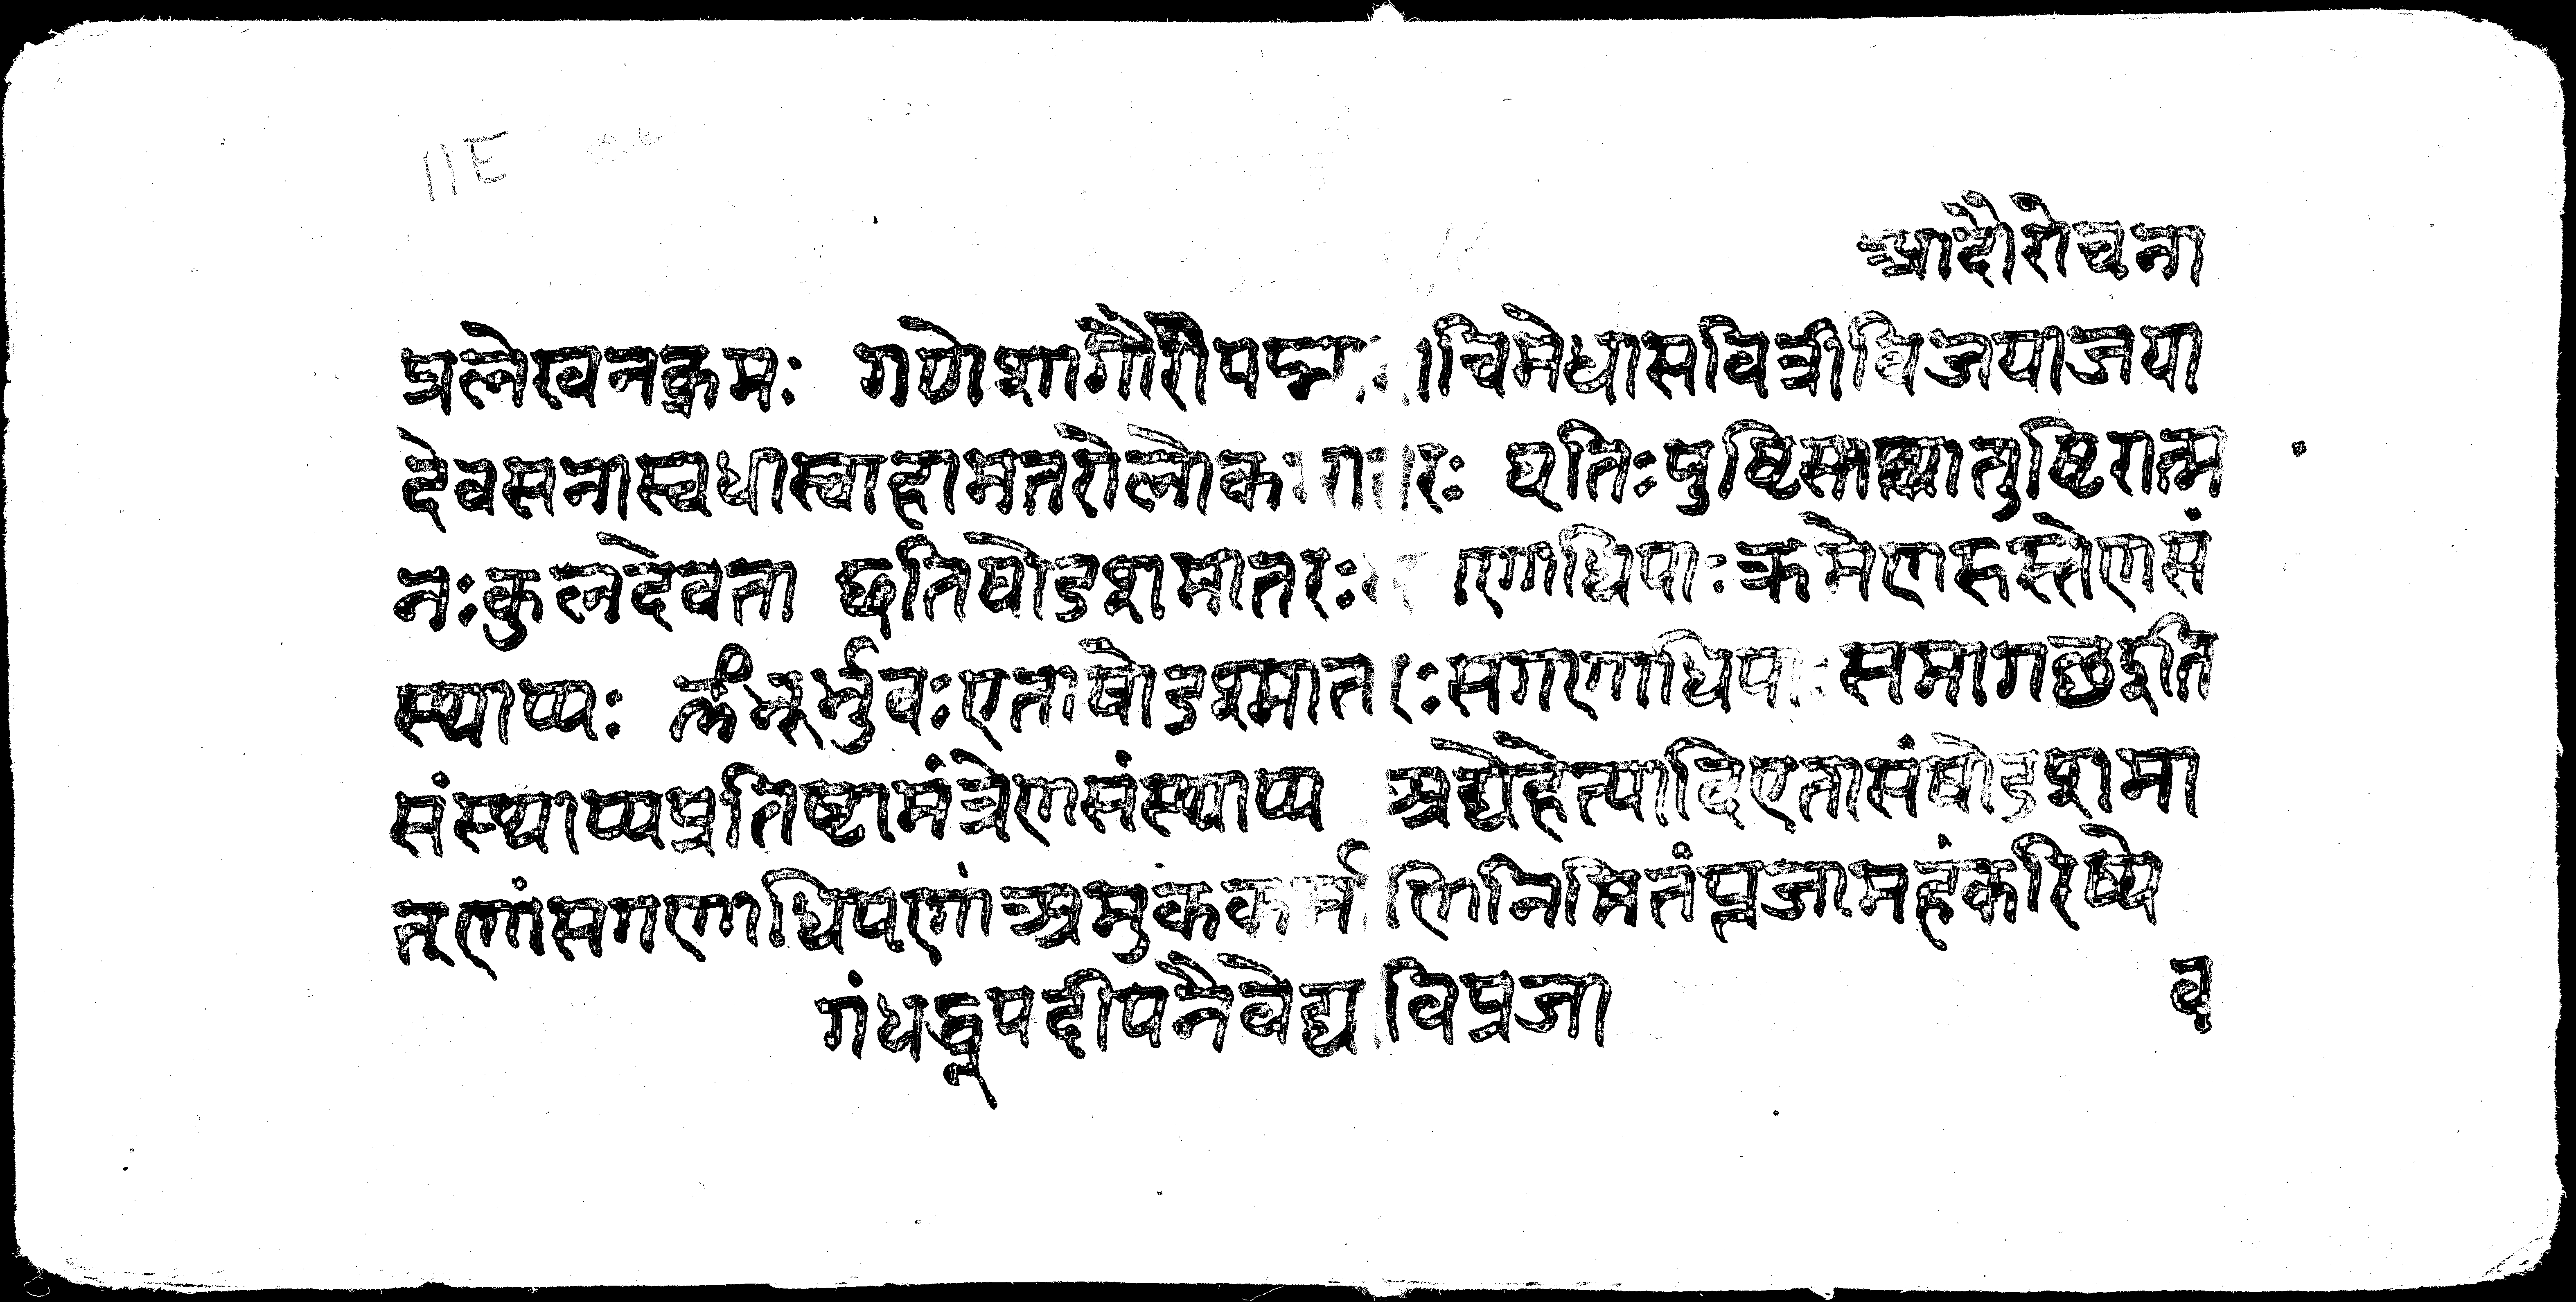 11E
आदौरोचना
प्रलेखनक्रमः गणेशगौरीपद्मा चिमेधासवित्रीविजयाजया
देवसेनास्वधास्वाहामातरोलोक तरः धृतिःपुष्टिस्तथातुष्टिरात्म
नःकुलदेवता इतिषोडशमातरः णाधिपाःक्रमेणहस्तेणसं
स्थाप्यः ॐभूर्भुवःएताषोडश्मातरःसगणाधिपाःसमागछइति
संस्थाप्यप्रतिष्टामंत्रेणसंस्थाप्य अद्येहेत्यादिएतासंषोडशमा
तृणांसगणाधिपाणांअमुकंक निमितंपूजामहंकरिष्ये
गंधद्धूपदीपनैवेद्य विपूजा व